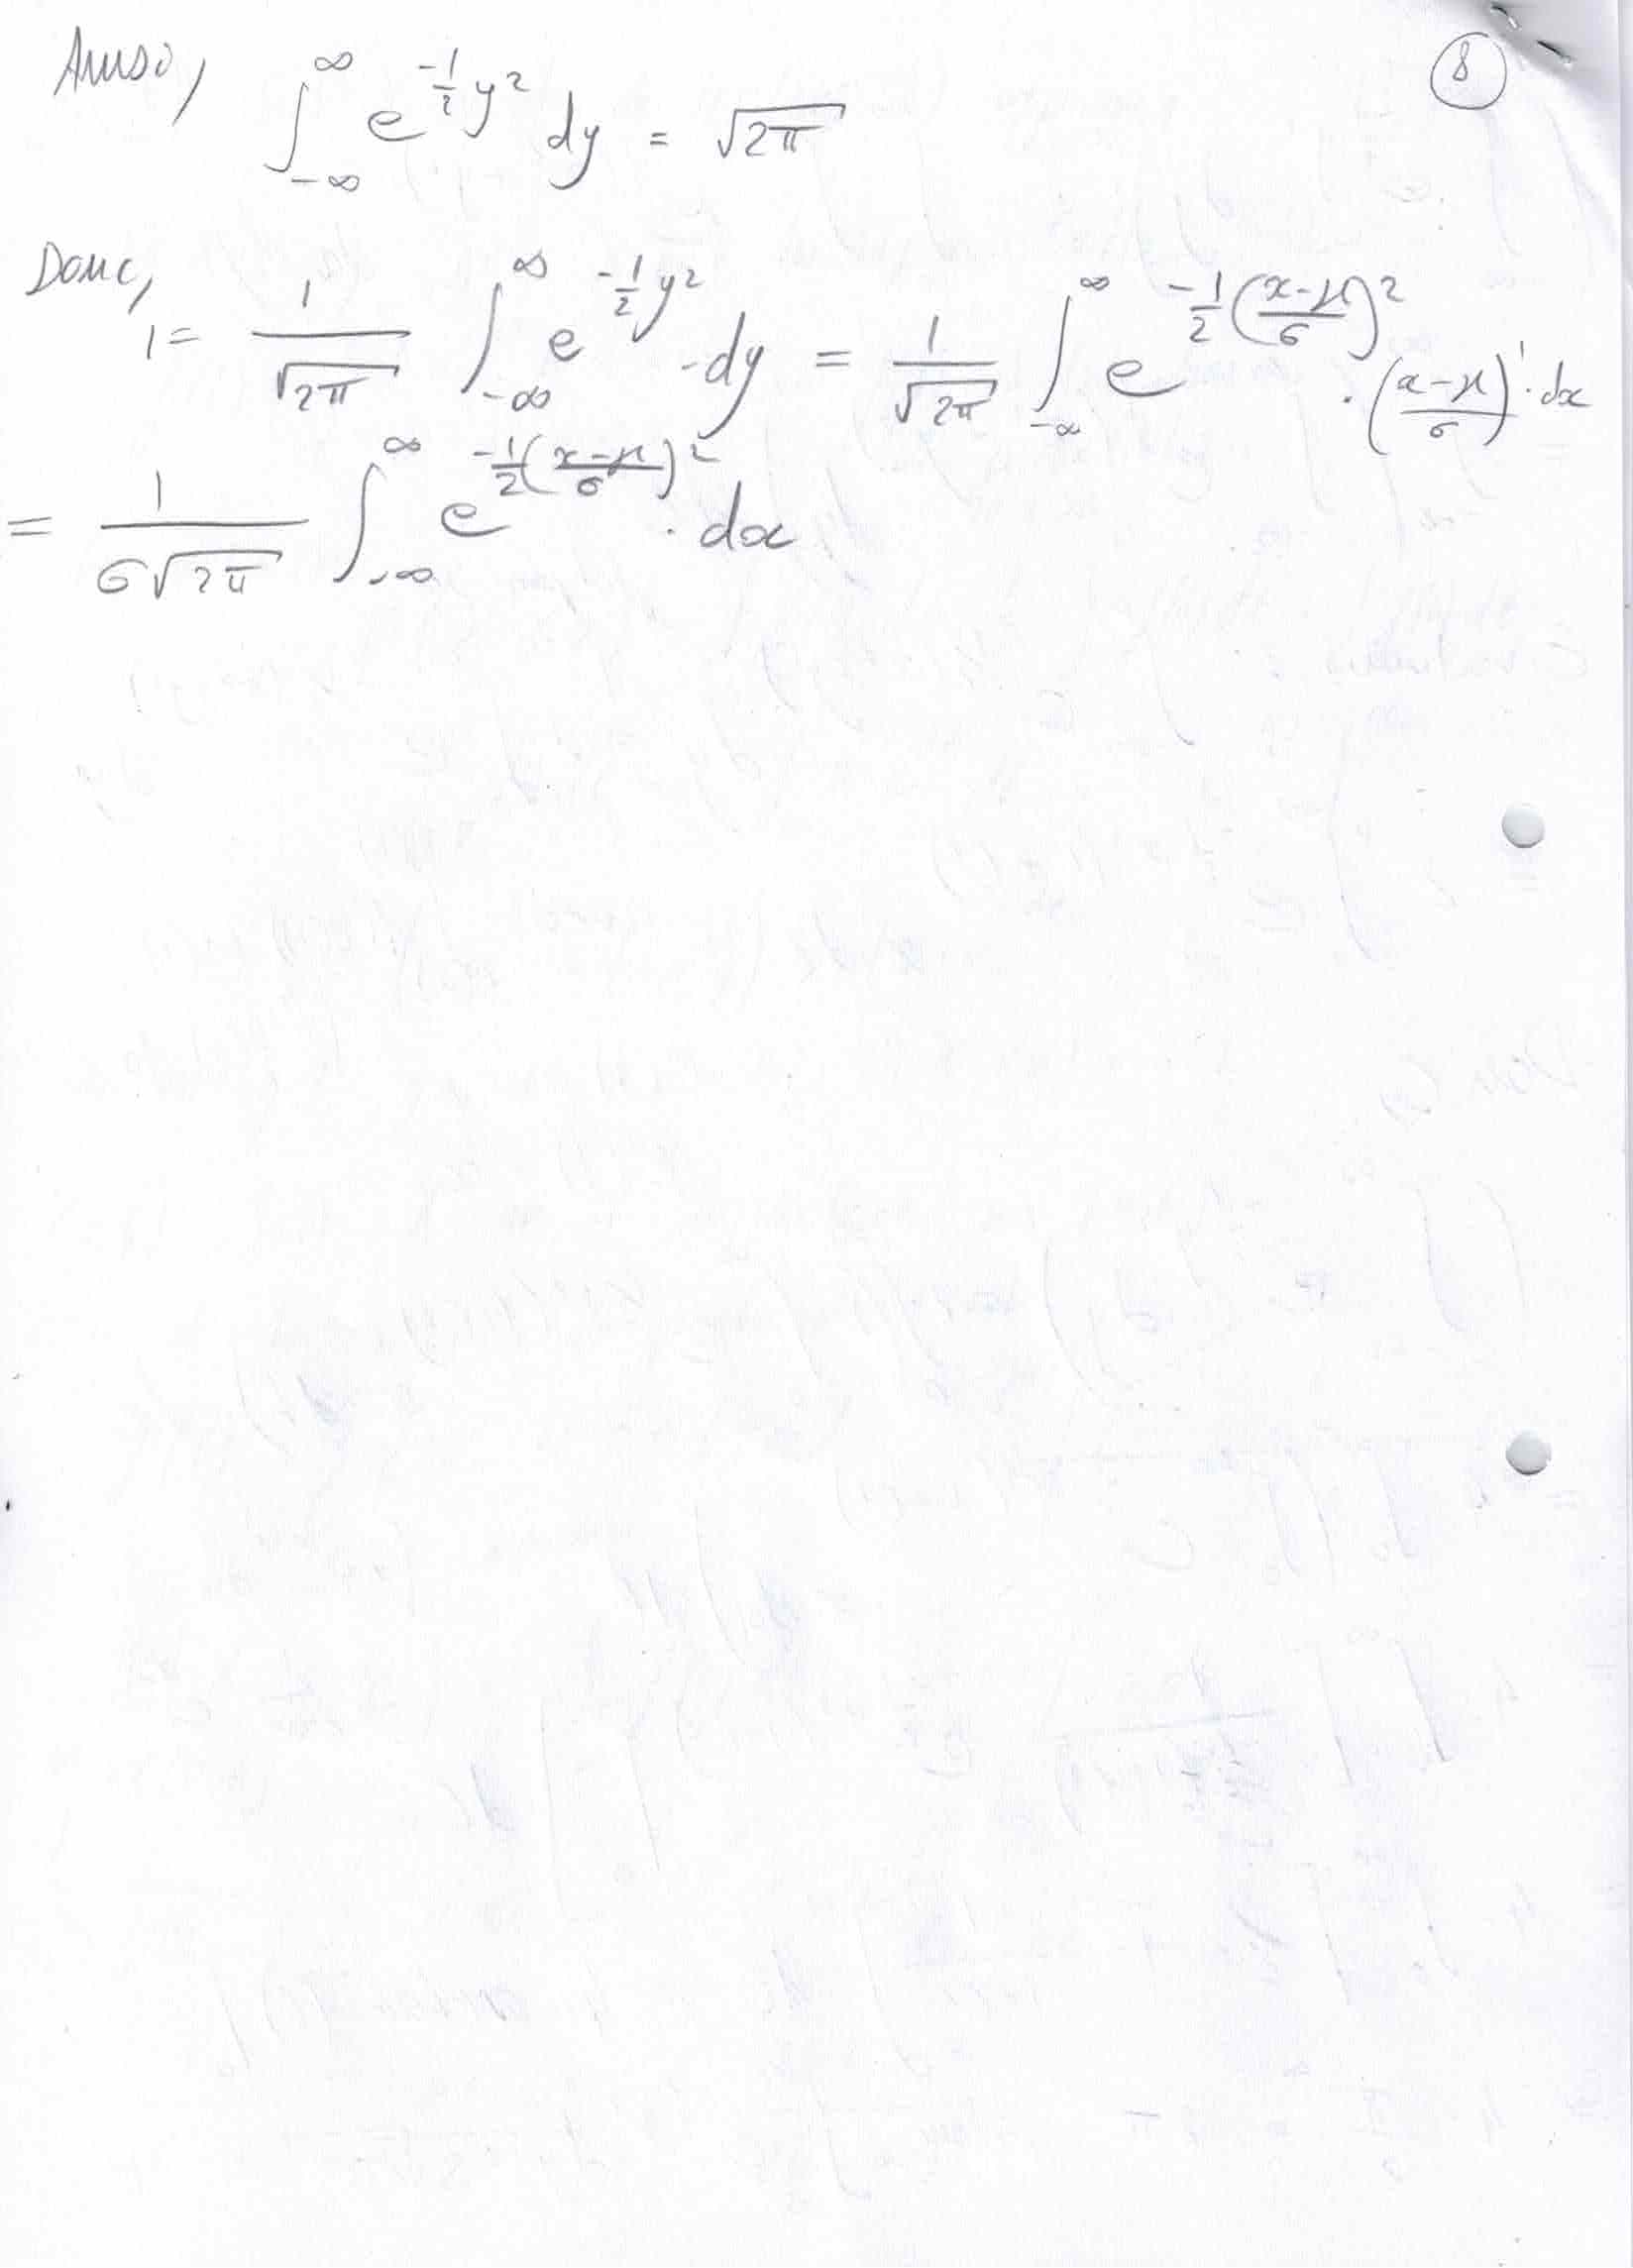 8
Ainsi, ∫_{-∞}^{∞} e^{-1/2 y²} dy = √(2π)
Donc,
1 = 1/√(2π) ∫_{-∞}^{∞} e^{-1/2 y²} · dy = 1/√(2π) ∫_{-∞}^{∞} e^{-1/2 ((x-μ)/σ)²} · ((x-μ)/σ)' · dx
= 1/(σ√(2π)) ∫_{-∞}^{∞} e^{-1/2 ((x-μ)/σ)²} · dx